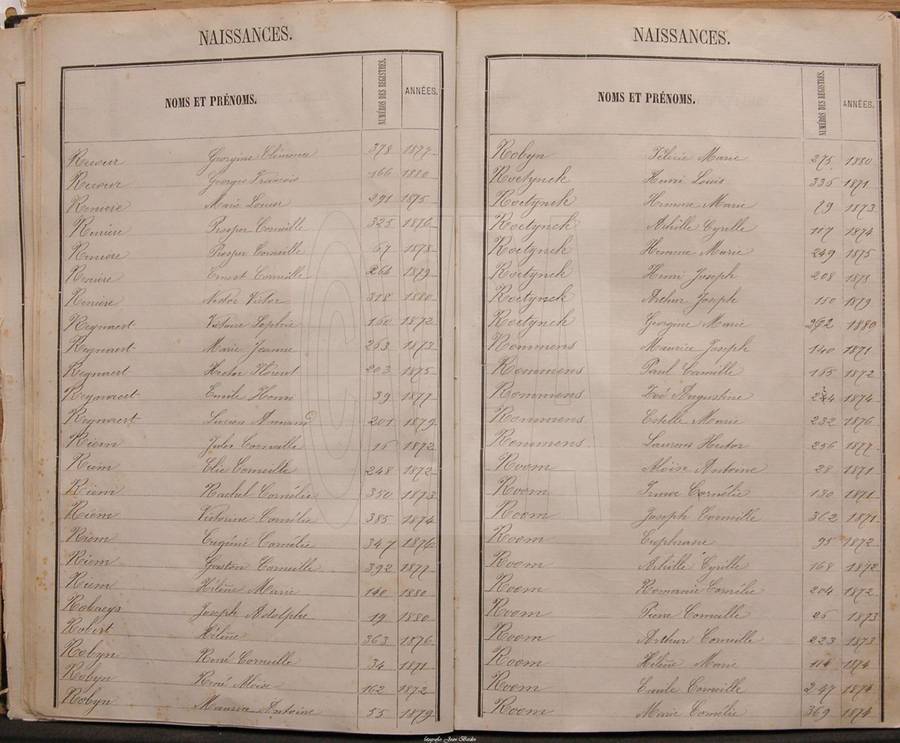 NAISSANCES.
NOMS ET PRÉNOMS. NUMÉROS DES REGISTRES. ANNÉES.
Georgine Clémence 378 1877
Georges Francois 166 1880
Renière Marie Louise 291 1875
Renière Prosper Corneille 325 1876
Renière Prosper Corneille 67 1878
Renière Ernest Corneille 266 1879
Renière Nestor Victor 318 1880
Reynaert Victoire Sophie 160 1872
Reynaert Marie Jeanne 263 1873
Reynaert Hector Florent 203 1875
Reynaert Emile Henri 39 1877
Reynaert Lucien Armand 201 1879
Riem Jules Corneille 15 1872
Riem Elie Corneille 248 1872
Riem Rachel Cornélie 350 1873
Riem Victorine Cornélie 385 1874
Riem Eugénie Cornélie 347 1876
Riem Gaston Corneille 392 1877
Riem Hélène Marie 1880
Robaeys Joseph Adolphe 19 1880
Robert Hélène 363 1876
Robyn René Corneille 34 1871
Robyn René Aloïse 162 1872
Robyn Maurice Antoine 55 1879
NAISSANCES.
NOMS ET PRÉNOMS. NUMÉROS DES REGISTRES. ANNÉES.
Robyn Félicie Marie 275 1880
Roetynck Henri Louis 335 1871
Roetynck Hermine Marie 1873
Roetynck Achille Cyrille 117 1874
Roetynck Hermine Marie 249 1875
Roetynck Henri Joseph 208 1878
Roetynck Arthur Joseph 150 1879
Roetynck Georgine Marie 292 1880
Rommens Maurice Joseph 140 1871
Rommens Paul Camille 165 1872
Rommens Zoé Augustine 1874
Rommens Estelle Marie 232 1876
Rommens Laurens Hector 256 1877
Room Aloïse Antoine 28 1871
Room Irma Cornélie 130 1871
Room Joseph Corneille 362 1871
Room Euphrasie 95 1872
Room Achille Cyrille 168 1872
Room Romanie Cornélie 204 1872
Room Pierre Corneille 25 1873
Room Arthur Corneille 223 1873
Room Hélène Marie 114 1874
Room Emile Corneille 247 1874
Room Marie Cornélie 369 1874